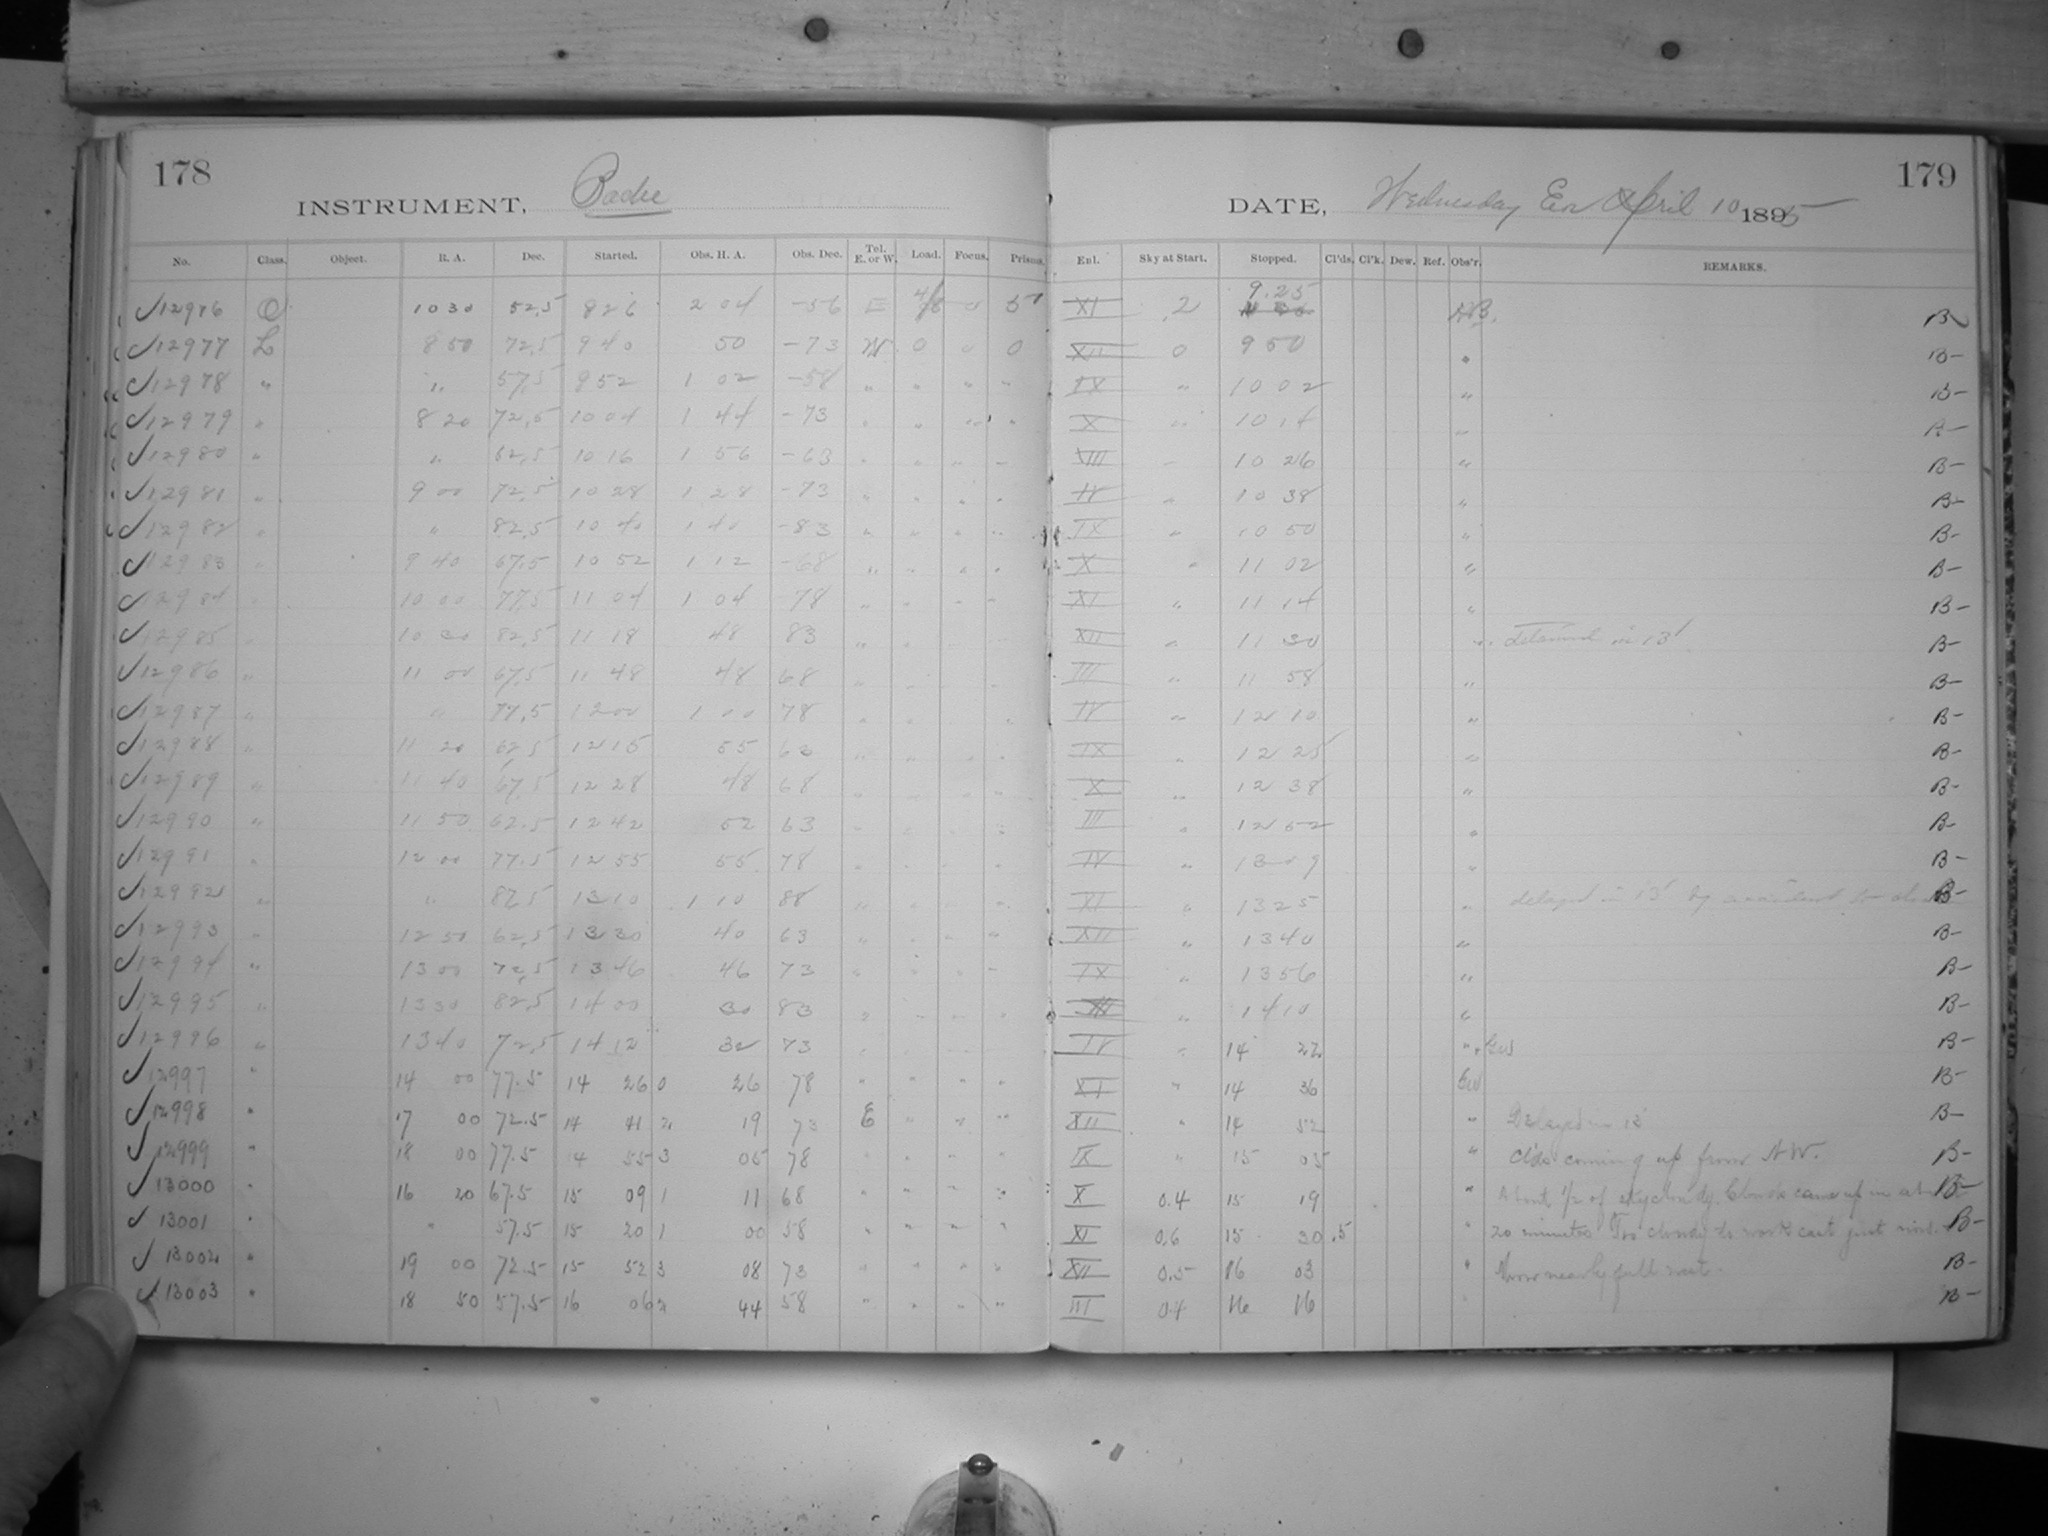 178
INSTRUMENT, Bache
No. Class. Object. R. A. Dec. Started. Obs. H. A. Obs. Dec. Tel. E. or W. Load. Focus. Prisms.
12976 O 10 30 52.5 8 26 2 04 -56 E 4/8 0
12977 L 8 50 72.5 9 40 50 -73 W 0 0 0
12978 " " 57.5 9 52 1 02 -58 " " " "
12979 " 8 20 72.5 10 04 1 44 -73 " " " "
12980 " " 62.5 10 16 1 56 -63 " " " "
12981 " 9 00 72.5 10 28 1 28 -73 " " " "
12982 " " 82.5 10 40 1 40 -83 " " " "
12983 " 9 40 67.5 10 52 1 12 -68 " " " "
12984 " 10 00 77.5 11 04 1 04 -78 " " " "
12985 " 10 30 82.5 11 18 48 83 " " "
12986 " 11 00 67.5 11 48 48 68 " " "
12987 " " 77.5 12 00 1 00 78 " " "
12988 " 11 20 62.5 12 15 55 63 " " " "
12989 " 11 40 67.5 12 28 48 68 " " " "
12990 " 11 50 62.5 12 42 52 63 " " " "
12991 " 12 00 77.5 12 55 55 78 " " " "
12992 " " 87.5 13 10 1 10 88 " " " "
12993 " 12 50 62.5 13 30 40 63 " " " "
12994 " 13 00 72.5 13 46 46 73 " " " "
12995 " 13 30 82.5 14 00 30 83 " " " "
12996 " 13 40 72.5 14 12 32 73 " " " "
12997 " 14 00 77.5 14 26 0 26 78 " " " "
12998 " 17 00 72.5 14 41 2 19 73 E " " "
12999 " 18 00 77.5 14 55 3 05 78 " " " "
13000 " 16 20 67.5 15 09 1 11 68 " " " "
13001 " " 57.5 15 20 1 00 58 " " " "
13002 " 19 00 72.5 15 52 3 08 73 " " " "
13003 " 18 50 57.5 16 06 2 44 58 " " " "
179
DATE, Wednesday Eve April 10 1895
Enl. Sky at Start. Stopped. Cl'ds. Cl'k. Dew. Ref. Obs'r. REMARKS.
XI 2 9.25 B-
XII 0 9 50 " B-
IX " 10 02 " B-
X " 10 14 " B-
VIII " 10 26 " B-
IV " 10 38 " B-
IX " 10 50 " B-
X " 11 02 " B-
XI " 11 14 " B-
XII " 11 30 " B-
III " 11 58 " B-
IV " 12 10 " B-
IX " 12 25 " B-
X " 12 38 " B-
III " 12 52 " B-
IV " 13 09 " B-
XI " 13 25 " delayed in 13' by B-
XII " 13 40 " B-
IX " 13 56 " B-
" 14 10 " B-
IV " 14 22 " B-
XI " 14 36 B-
XII " 14 52 " Delayed in 13' B-
IX " 15 05 " Clds coming up from N.W. B-
X 0.4 15 19 " About 1/2 of sky cloudy. Clouds came up in B-
XI 0.6 15 30 .5 " 20 minutes Too cloudy to work east just now. B-
XII 0.5 16 03 " Moon nearly full B-
III 0.4 16 16 B-